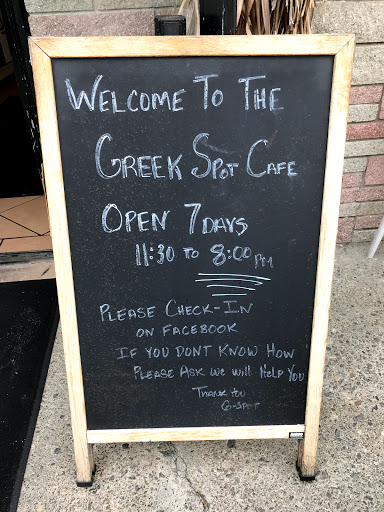 WELCOME TO THE
GREEK SPOT CAFE
OPEN 7 DAYS
11:30 TO 8:00 PM
PLEASE CHECK-IN
ON FACEBOOK
IF YOU DONT KNOW HOW
PLEASE ASK WE WILL HELP YOU
THANK YOU
G-SPOT